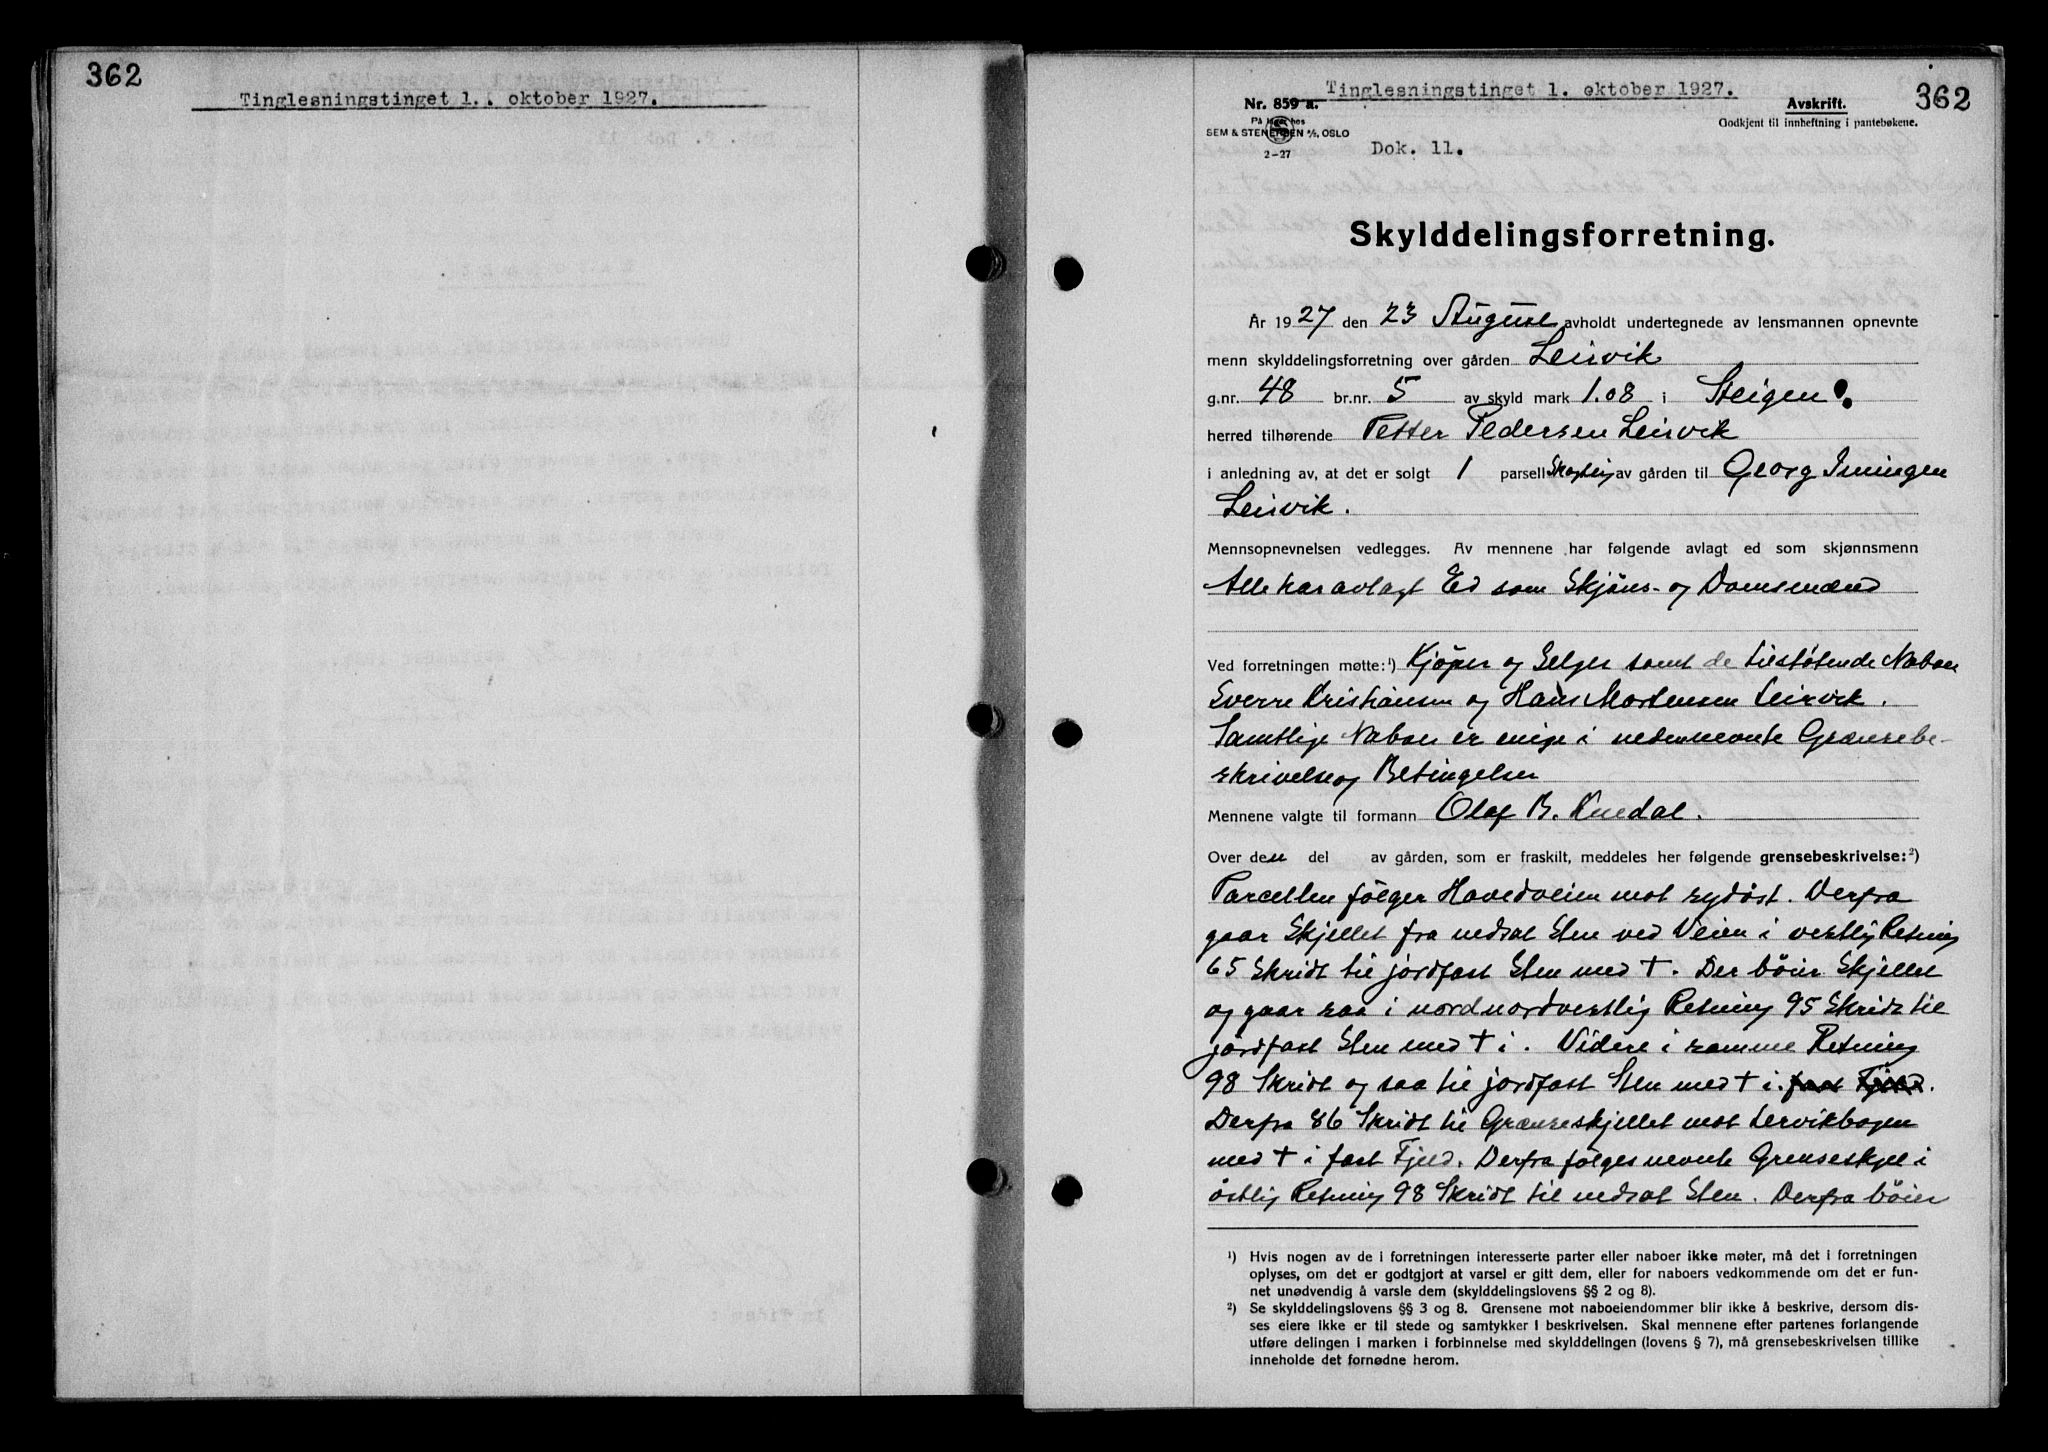 362
Tinglesningstinget 1. oktober 1927.
Tinglesningstinget 1. oktober 1927.
362
Nr. 859 a.
Avskrift.
På lager hos
Godkjent til innheftning i pantebøkene.
SEM & STENERSEN A/S, OSLO
2-27
Dok. 11.
Skylddelingsforretning.
År 1927 den 23 August avholdt undertegnede av lensmannen opnevnte
menn skylddelingsforretning over gården Leirvik
g.nr. 48 br.nr. 5 av skyld mark 1.08 i Steigen
herred tilhørende Petter Pedersen Leirvik
i anledning av, at det er solgt 1 parsell Skogteig av gården til Georg Iningen
Leirvik.
Mennsopnevnelsen vedlegges. Av mennene har følgende avlagt ed som skjønnsmenn
Alle har avlagt Ed som Skjöns- og Domsmænd
Ved forretningen møtte:¹) Kjöper og Selger samt de tilstøtende Naboer
Sverre Kristiansen og Hans Mortensen Leirvik.
Samtlige Naboer er enige i nedennevnte Grænsebe-
skrivelse og Betingelser
Mennene valgte til formann Olof B.
Over den del av gården, som er fraskilt, meddeles her følgende grensebeskrivelse:²)
Parcellen fölger Hovedveien mot sydöst. Derfra
gaar Skjellet fra nedsat Sten ved Veien i vestlig Retning
65 Skridt til jordfast Sten med +. Der böier Skjellet
og gaar saa i nordnordvestlig Retning 95 Skridt til
jordfast Sten med + i. Videre i samme Retning
98 Skridt og saa til jordfast Sten med + i. fast Fjeld.
Derfra 86 Skridt til Grænseskjellet mot Lervikbogen
med + i fast Fjeld. Derfra fölges nevnte Grenseskjel i
östlig Retning 98 Skridt til nedsat Sten. Derfra böier
¹) Hvis nogen av de i forretningen interesserte parter eller naboer ikke møter, må det i forretningen
oplyses, om det er godtgjort at varsel er gitt dem, eller for naboers vedkommende om det er fun-
net unødvendig å varsle dem (skylddelingslovens §§ 2 og 8).
²) Se skylddelingslovens §§ 3 og 8. Grensene mot naboeiendommer blir ikke å beskrive, dersom dis-
ses eiere ikke er til stede og samtykker i beskrivelsen. Skal mennene efter partenes forlangende
utføre delingen i marken i forbinnelse med skylddelingen (lovens § 7), må grensebeskrivelsen tillike
inneholde det fornødne herom.